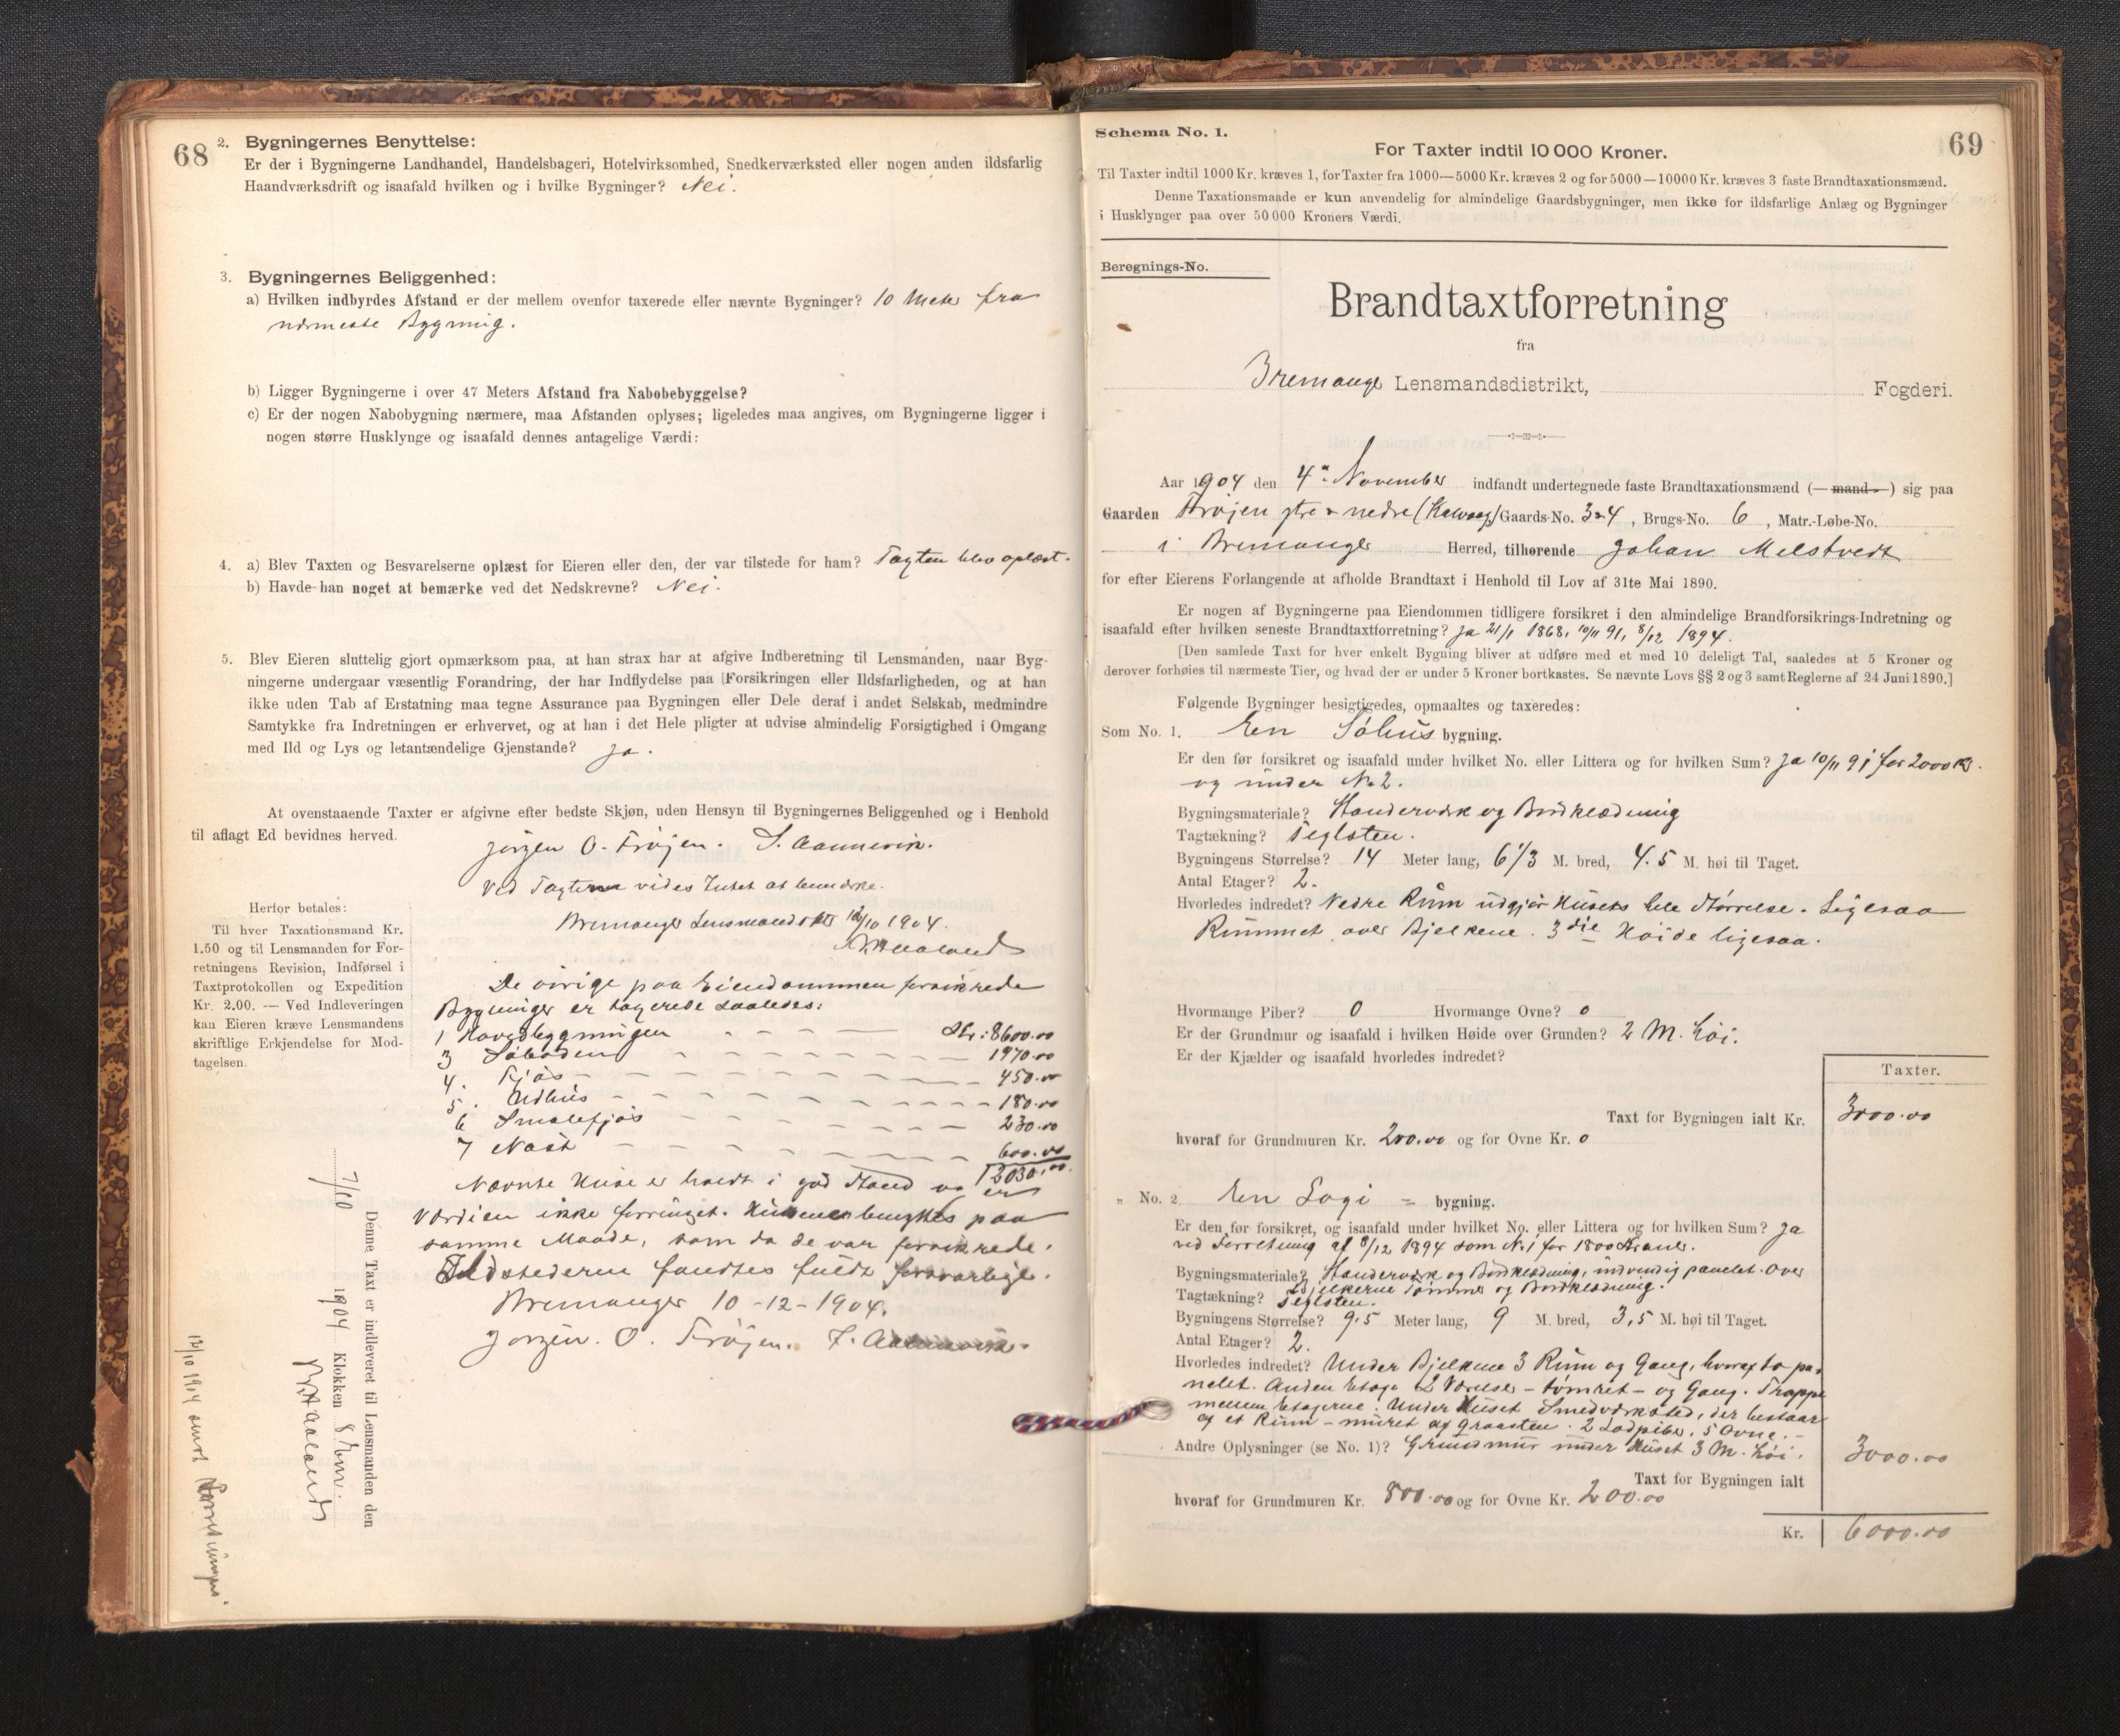 68
2. Bygningernes Benyttelse:
Er der i Bygningerne Landhandel, Handelsbageri, Hotelvirksomhed, Snedkerværksted eller nogen anden ildsfarlig
Haandværksdrift og isaafald hvilken og i hvilke Bygninger? Nei.
3. Bygningernes Beliggenhed:
a) Hvilken indbyrdes Afstand er der mellem ovenfor taxerede eller nævnte Bygninger? 10 Meter fra
nærmeste Bygning.
b) Ligger Bygningerne i over 47 Meters Afstand fra Nabobebyggelse?
c) Er der nogen Nabobygning nærmere, maa Afstanden oplyses; ligeledes maa angives, om Bygningerne ligger i
nogen større Husklynge og isaafald dennes antagelige Værdi:
4. a) Blev Taxten og Besvarelserne oplæst for Eieren eller den, der var tilstede for ham? Taxten blev oplæst.
b) Havde han noget at bemærke ved det Nedskrevne? Nei.
5. Blev Eieren sluttelig gjort opmærksom paa, at han strax har at afgive Indberetning til Lensmanden, naar Byg-
ningerne undergaar væsentlig Forandring, der har Indflydelse paa Forsikringen eller Ildsfarligheden, og at han
ikke uden Tab af Erstatning maa tegne Assurance paa Bygningen eller Dele deraf i andet Selskab, medmindre
Samtykke fra Indretningen er erhvervet, og at han i det Hele pligter at udvise almindelig Forsigtighed i Omgang
med Ild og Lys og letantændelige Gjenstande? Ja.
At ovenstaaende Taxter er afgivne efter bedste Skjøn, uden Hensyn til Bygningernes Beliggenhed og i Henhold
til aflagt Ed bevidnes herved.
Jørgen O. Frøjen. S. Aannevik.
Ved Taxterne vides Intet at bemærke.
Bremanger Lensmandsktr 12/10 1904.
Herfor betales:
Til hver Taxationsmand Kr.
1.50 og til Lensmanden for For-
retningens Revision, Indførsel i
Taxtprotokollen og Expedition
Kr. 2.00. — Ved Indleveringen
kan Eieren kræve Lensmandens
skriftlige Erkjendelse for Mod-
tagelsen.
De øvrige paa Eiendommen forsikrede
Bygninger er taxerede saaledes:
1 Hovedbygningen Kr: 8600.00
3 Søboden 1970.00
4. Fjøs 450.00
5. Eldhus 180.00
6 Smalefjøs 230.00
7 Nøst 600.00
12030.00.
Nævnte Huse er holdt i god Stand og er
Værdien ikke forringet. Husene benyttes paa
samme Maade, som da de var forsikrede.
Ildstederne fandtes fuldt forsvarlige.
Bremanger 10-12-1904.
Jørgen. O. Frøjen.
Denne Taxt er indleveret til Lensmanden den
7/10 1904 Klokken 8 Em.
12/10 1904
Schema No. 1.
69
For Taxter indtil 10 000 Kroner.
Til Taxter indtil 1000 Kr. kræves 1, for Taxter fra 1000—5000 Kr. kræves 2 og for 5000—10000 Kr. kræves 3 faste Brandtaxationsmænd.
Denne Taxationsmaade er kun anvendelig for almindelige Gaardsbygninger, men ikke for ildsfarlige Anlæg og Bygninger
i Husklynger paa over 50 000 Kroners Værdi.
Beregnings-No.
Brandtaxtforretning
fra
Bremanger Lensmandsdistrikt, Fogderi.
Aar 1904 den 4de November indfandt undertegnede faste Brandtaxationsmænd (—mand—) sig paa
Gaarden Frøjen ytre & nedre (Kalvaag) Gaards-No. 3 & 4, Brugs-No. 6, Matr.-Løbe-No.
i Bremanger Herred, tilhørende Johan Melstvedt
for efter Eierens Forlangende at afholde Brandtaxt i Henhold til Lov af 31te Mai 1890.
Er nogen af Bygningerne paa Eiendommen tidligere forsikret i den almindelige Brandforsikrings-Indretning og
isaafald efter hvilken seneste Brandtaxtforretning? Ja 21/1 1868, 10/11 91, 8/12 1894.
[Den samlede Taxt for hver enkelt Bygning bliver at udføre med et med 10 deleligt Tal, saaledes at 5 Kroner og
derover forhøies til nærmeste Tier, og hvad der er under 5 Kroner bortkastes. Se nævnte Lovs §§ 2 og 3 samt Reglerne af 24 Juni 1890.]
Følgende Bygninger besigtigedes, opmaaltes og taxeredes:
Som No. 1. En Søhus bygning.
Er den før forsikret og isaafald under hvilket No. eller Littera og for hvilken Sum? Ja 10/11 91 for 2000 Kr.
og under No 2.
Bygningsmateriale? Standerværk og Bordklædning
Tagtækning? Teglsten.
Bygningens Størrelse? 14 Meter lang, 6 1/3 M. bred, 4.5 M. høi til Taget.
Antal Etager? 2.
Hvorledes indredet? Nedre Rum udgjør Husets hele Størrelse. Ligesaa
Rummet over Bjelkene. 3die Høide ligesaa.
Hvormange Piber? 0 Hvormange Ovne? 0
Er der Grundmur og isaafald i hvilken Høide over Grunden? 2 M. høi.
Er der Kjælder og isaafald hvorledes indredet?
Taxter.
Taxt for Bygningen ialt Kr. 3000.00
hvoraf for Grundmuren Kr. 200.00 og for Ovne Kr. 0
„ No. 2. En Logi - bygning.
Er den før forsikret, og isaafald under hvilket No. eller Littera og for hvilken Sum? Ja
ved Forretning af 8/12 1894 som No 1 for 1800 Kroner.
Bygningsmateriale? Standerværk og Bordklædning, indvendig panelet. Over
Bjelkerne Tømmer og Bordklædning.
Tagtækning? Teglsten.
Bygningens Størrelse? 9.5 Meter lang, 9 M. bred, 3,5 M. høi til Taget.
Antal Etager? 2.
Hvorledes indredet? Under Bjelkene 3 Rum og Gang, hvoraf to pa-
nelet. Anden Etage 2 Værelser - tømret - og Gang. Trappe
mellem Etagerne. Under Huset Smedværksted, der bestaar
af et Rum - muret af Graasten. 2 Lodpiber, 5 Ovne.
Andre Oplysninger (se No. 1)? Grundmur under Huset 3 M. høi.
Taxt for Bygningen ialt 3000.00
hvoraf for Grundmuren Kr. 800.00 og for Ovne Kr. 200.00
Kr. 6000.00